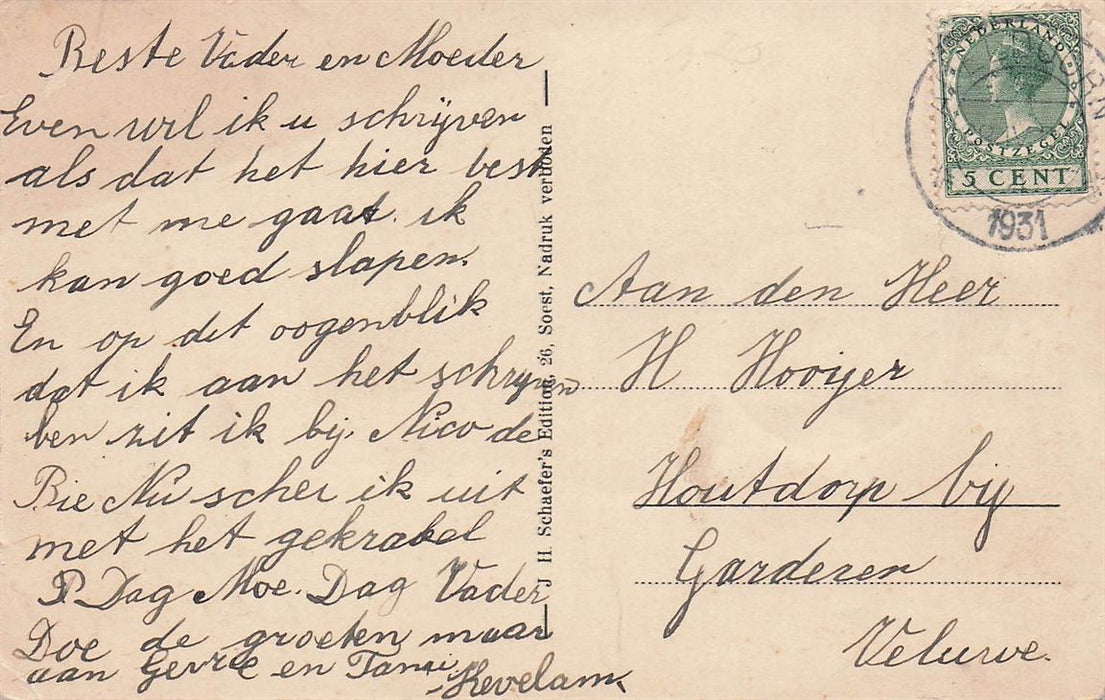 Beste Vader en Moeder
Even wil ik u schrijven
als dat het hier best
met me gaat. ik
kan goed slapen.
En op dit oogenblik
dat ik aan het schryven
ben zit ik bij Nico de
Bie Nu schei ik uit
met het gekrabel
Dag Moe. Dag Vader
Doe de groeten maar
aan en
Kevelam.
J H. Schaefer's Edition, 26, Soest, Nadruk verboden
NEDERLAND
POSTZEGEL
5 CENT
1931
Aan den Heer
H Hooijer
Houtdorp bij
Garderen
Veluwe.